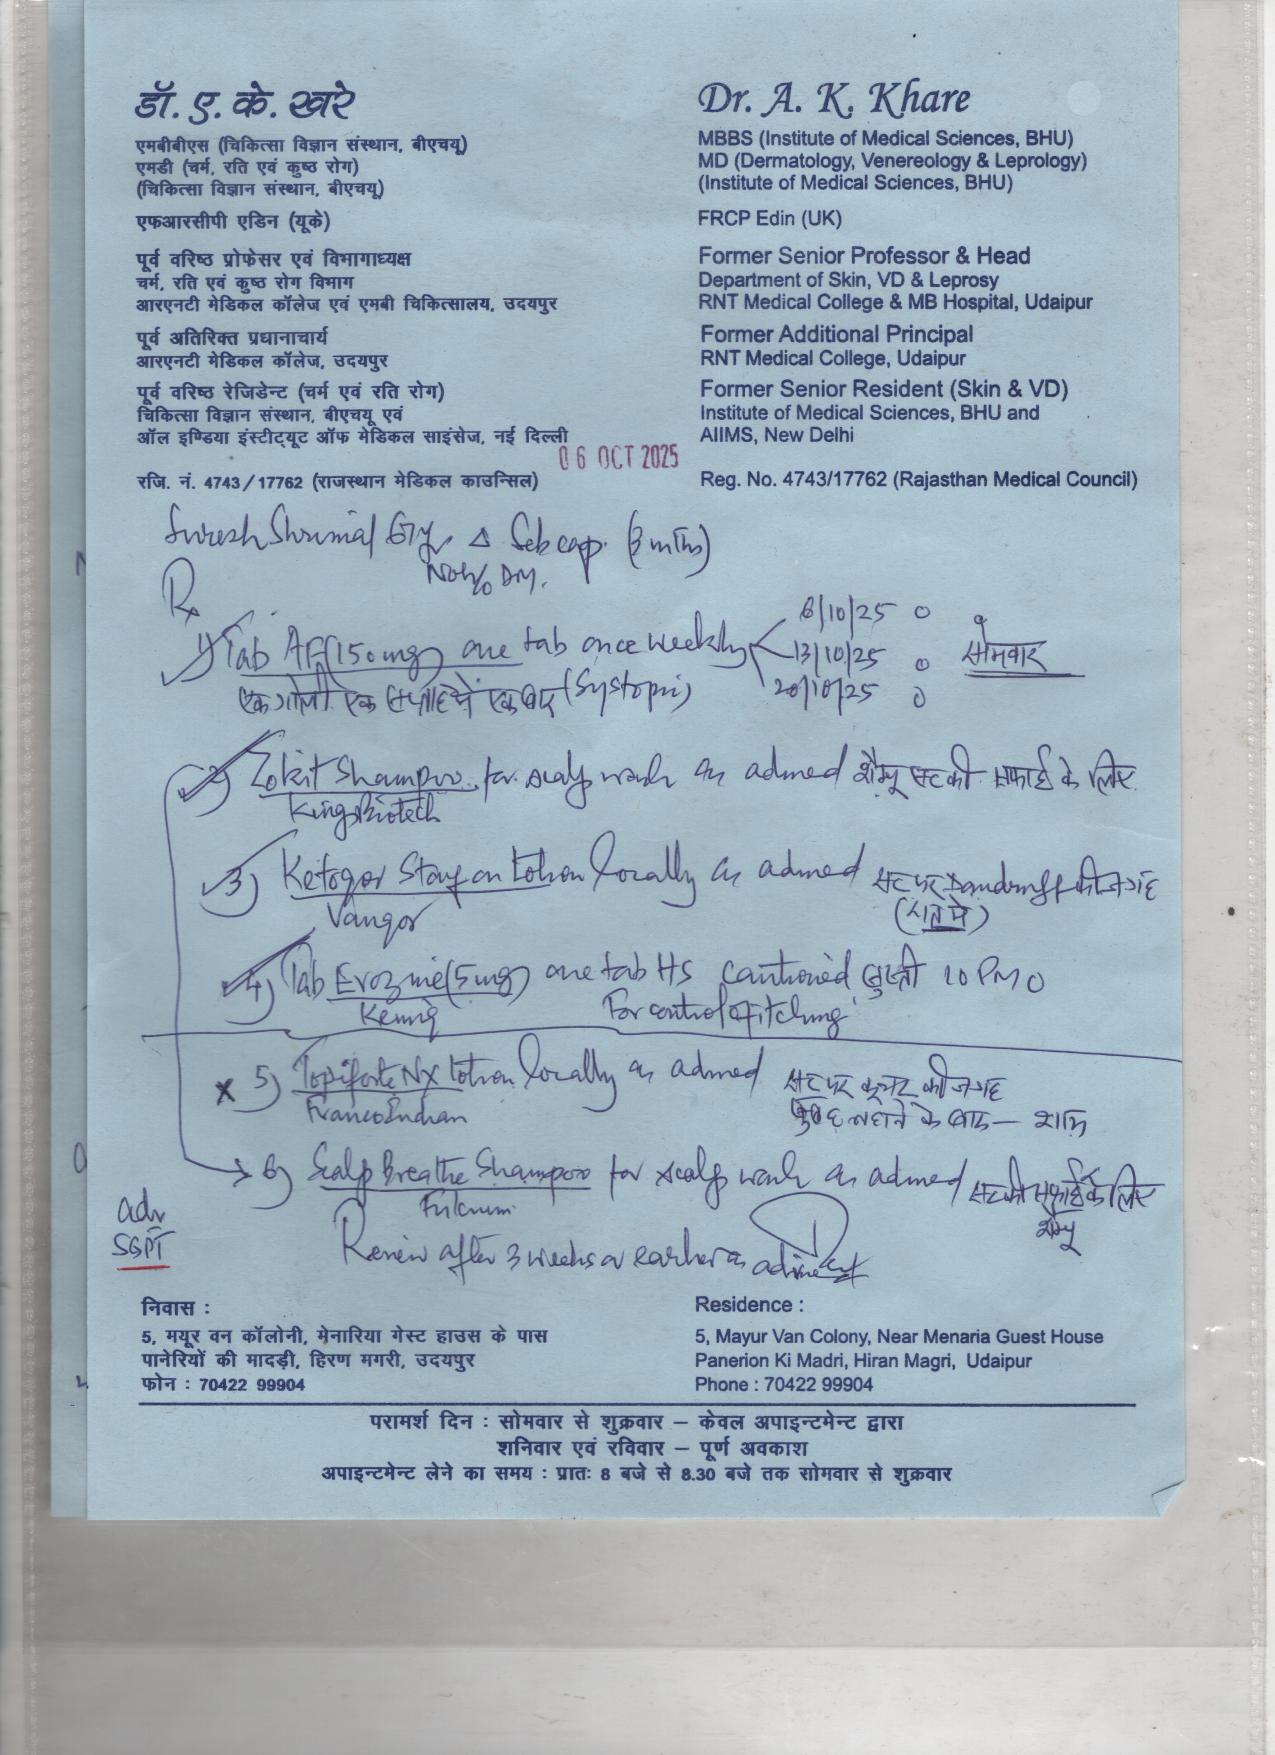 डॉ. ए. के. खरे
एमबीबीएस (चिकित्सा विज्ञान संस्थान, बीएचयू)
एमडी (चर्म, रति एवं कुष्ठ रोग)
(चिकित्सा विज्ञान संस्थान, बीएचयू)
एफआरसीपी एडिन (यूके)
पूर्व वरिष्ठ प्रोफेसर एवं विभागाध्यक्ष
चर्म, रति एवं कुष्ठ रोग विभाग
आरएनटी मेडिकल कॉलेज एवं एमबी चिकित्सालय, उदयपुर
पूर्व अतिरिक्त प्रधानाचार्य
आरएनटी मेडिकल कॉलेज, उदयपुर
पूर्व वरिष्ठ रेजिडेन्ट (चर्म एवं रति रोग)
चिकित्सा विज्ञान संस्थान, बीएचयू एवं
ऑल इण्डिया इंस्टीट्यूट ऑफ मेडिकल साइंसेज, नई दिल्ली
रजि. नं. 4743/17762 (राजस्थान मेडिकल काउन्सिल)
Dr. A. K. Khare
MBBS (Institute of Medical Sciences, BHU)
MD (Dermatology, Venereology & Leprology)
(Institute of Medical Sciences, BHU)
FRCP Edin (UK)
Former Senior Professor & Head
Department of Skin, VD & Leprosy
RNT Medical College & MB Hospital, Udaipur
Former Additional Principal
RNT Medical College, Udaipur
Former Senior Resident (Skin & VD)
Institute of Medical Sciences, BHU and
AIIMS, New Delhi
Reg. No. 4743/17762 (Rajasthan Medical Council)
06 OCT 2025
Suresh Shrimal Δ Seb cap. (3 mths)
No h/o DM.
Rx
1) Tab (150mg) one tab once weekly 6/10/25 0
13/10/25 0 सोमवार
20/10/25 0
एक गोली एक सप्ताह में एक बार (Systopic)
2) Shampoo for scalp wash as advised शैम्पू की सफाई के लिए
Kings Biotech
3) Stay on Lotion locally as advised पर Dandruff की जगह
(रात में)
4) Tab (5mg) one tab HS cautioned सुस्ती 10 PM 0
For control of itching
5) Topiforte NX Lotion locally as advised पर की जगह
Franco Indian सुबह नहाने के बाद — शाम
6) Scalp Breathe Shampoo for scalp wash as advised की सफाई के लिए
Fulcrum शैम्पू
adv
SGPT
Review after 3 weeks or earlier as advised
निवास :
5, मयूर वन कॉलोनी, मेनारिया गेस्ट हाउस के पास
पानेरियों की मादड़ी, हिरण मगरी, उदयपुर
फोन : 70422 99904
Residence :
5, Mayur Van Colony, Near Menaria Guest House
Panerion Ki Madri, Hiran Magri, Udaipur
Phone : 70422 99904
परामर्श दिन : सोमवार से शुक्रवार – केवल अपाइन्टमेन्ट द्वारा
शनिवार एवं रविवार – पूर्ण अवकाश
अपाइन्टमेन्ट लेने का समय : प्रातः 8 बजे से 8.30 बजे तक सोमवार से शुक्रवार